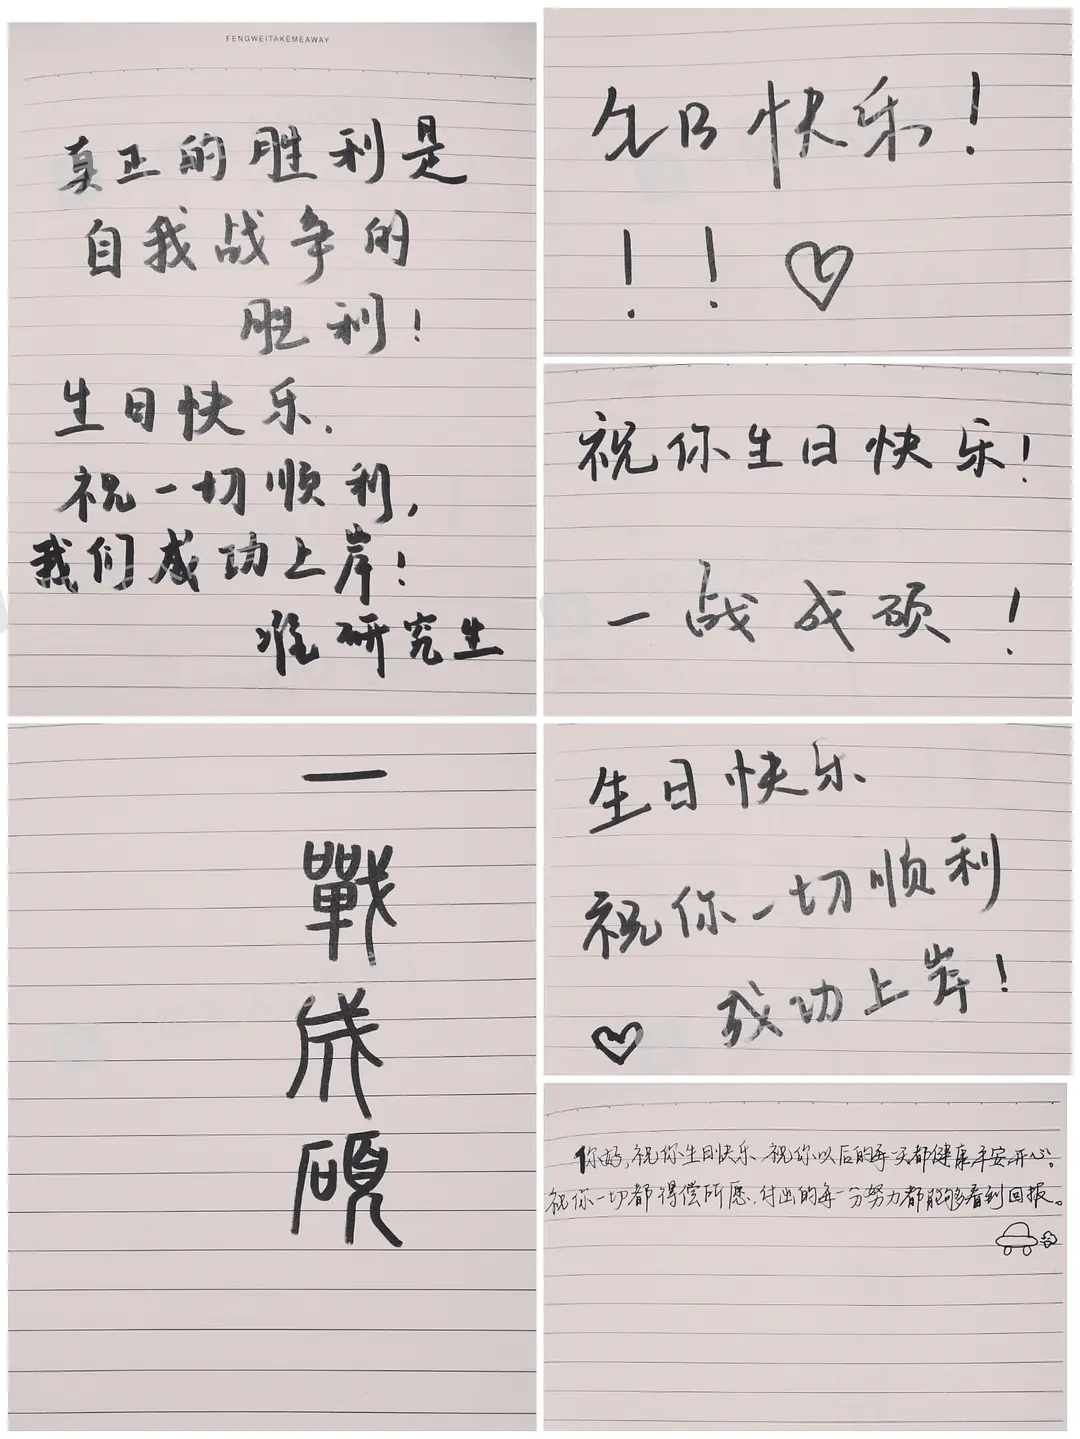 FENGWEITAKEMEAWAY
真正的胜利是
自我战争的
胜利！
生日快乐.
祝一切顺利,
我们成功上岸！
准研究生
生日快乐！
！！
祝你生日快乐！
一战成硕！
一
戰
成
碩
生日快乐
祝你一切顺利
成功上岸！
你好,祝你生日快乐 祝你以后的每一天都健康平安开心。
祝你一切都得偿所愿.付出的每一分努力都能够看到回报。